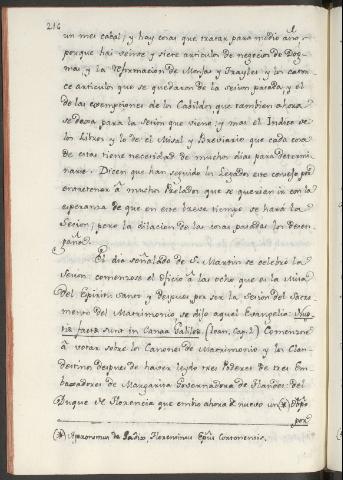 216
un mes cabal, y hay cosas que tratar para medio año,
porque hai veinte y siete articulos de negocios de Dog-
mas y la Reformacion de Monjas y Frayles y los cator-
ce articulos que se quedaron de la Sesion pasada, y el
de las exempciones de los Cabildos, que tambien ahora
se dexa para la Sesion que viene, y mas el Indice de
los Libros y lo de el Misal y Breviario que cada cosa
de estas tiene necesidad de mucho dias para determi-
narse. Dicen que han seguido los Legados este consejo por
entretener à mucho Prelados que se querian ir con la
esperanza de que en este breve tiempo se hará la
Sesion; pero la dilacion de las cosas pasadas los desen-
gana.
El dia señalado de S. Martin se celebrò la
Sesion: comenzose el Oficio à las ocho que es la Misa
del Espiritu Santo y despues, por ser la Sesion del Sacra-
mento del Matrimonio, se dijo aquel Evangelio: Nup-
tiæ factæ sunt in Canaa Galileæ. (Ioan. Cap. 2.) Comenzose
à votar sobre los Canones de Matrimonio y los Clan-
destinos despues de haver leydo tres Poderes de tres Em-
baxadores de Margarita Governadora de Flandes del
Duque de Florencia que embio ahora de nuevo un (*) Obpo
por
(*) Hyeronimus de Gadio, Florentinus Epũs Cortonensis.